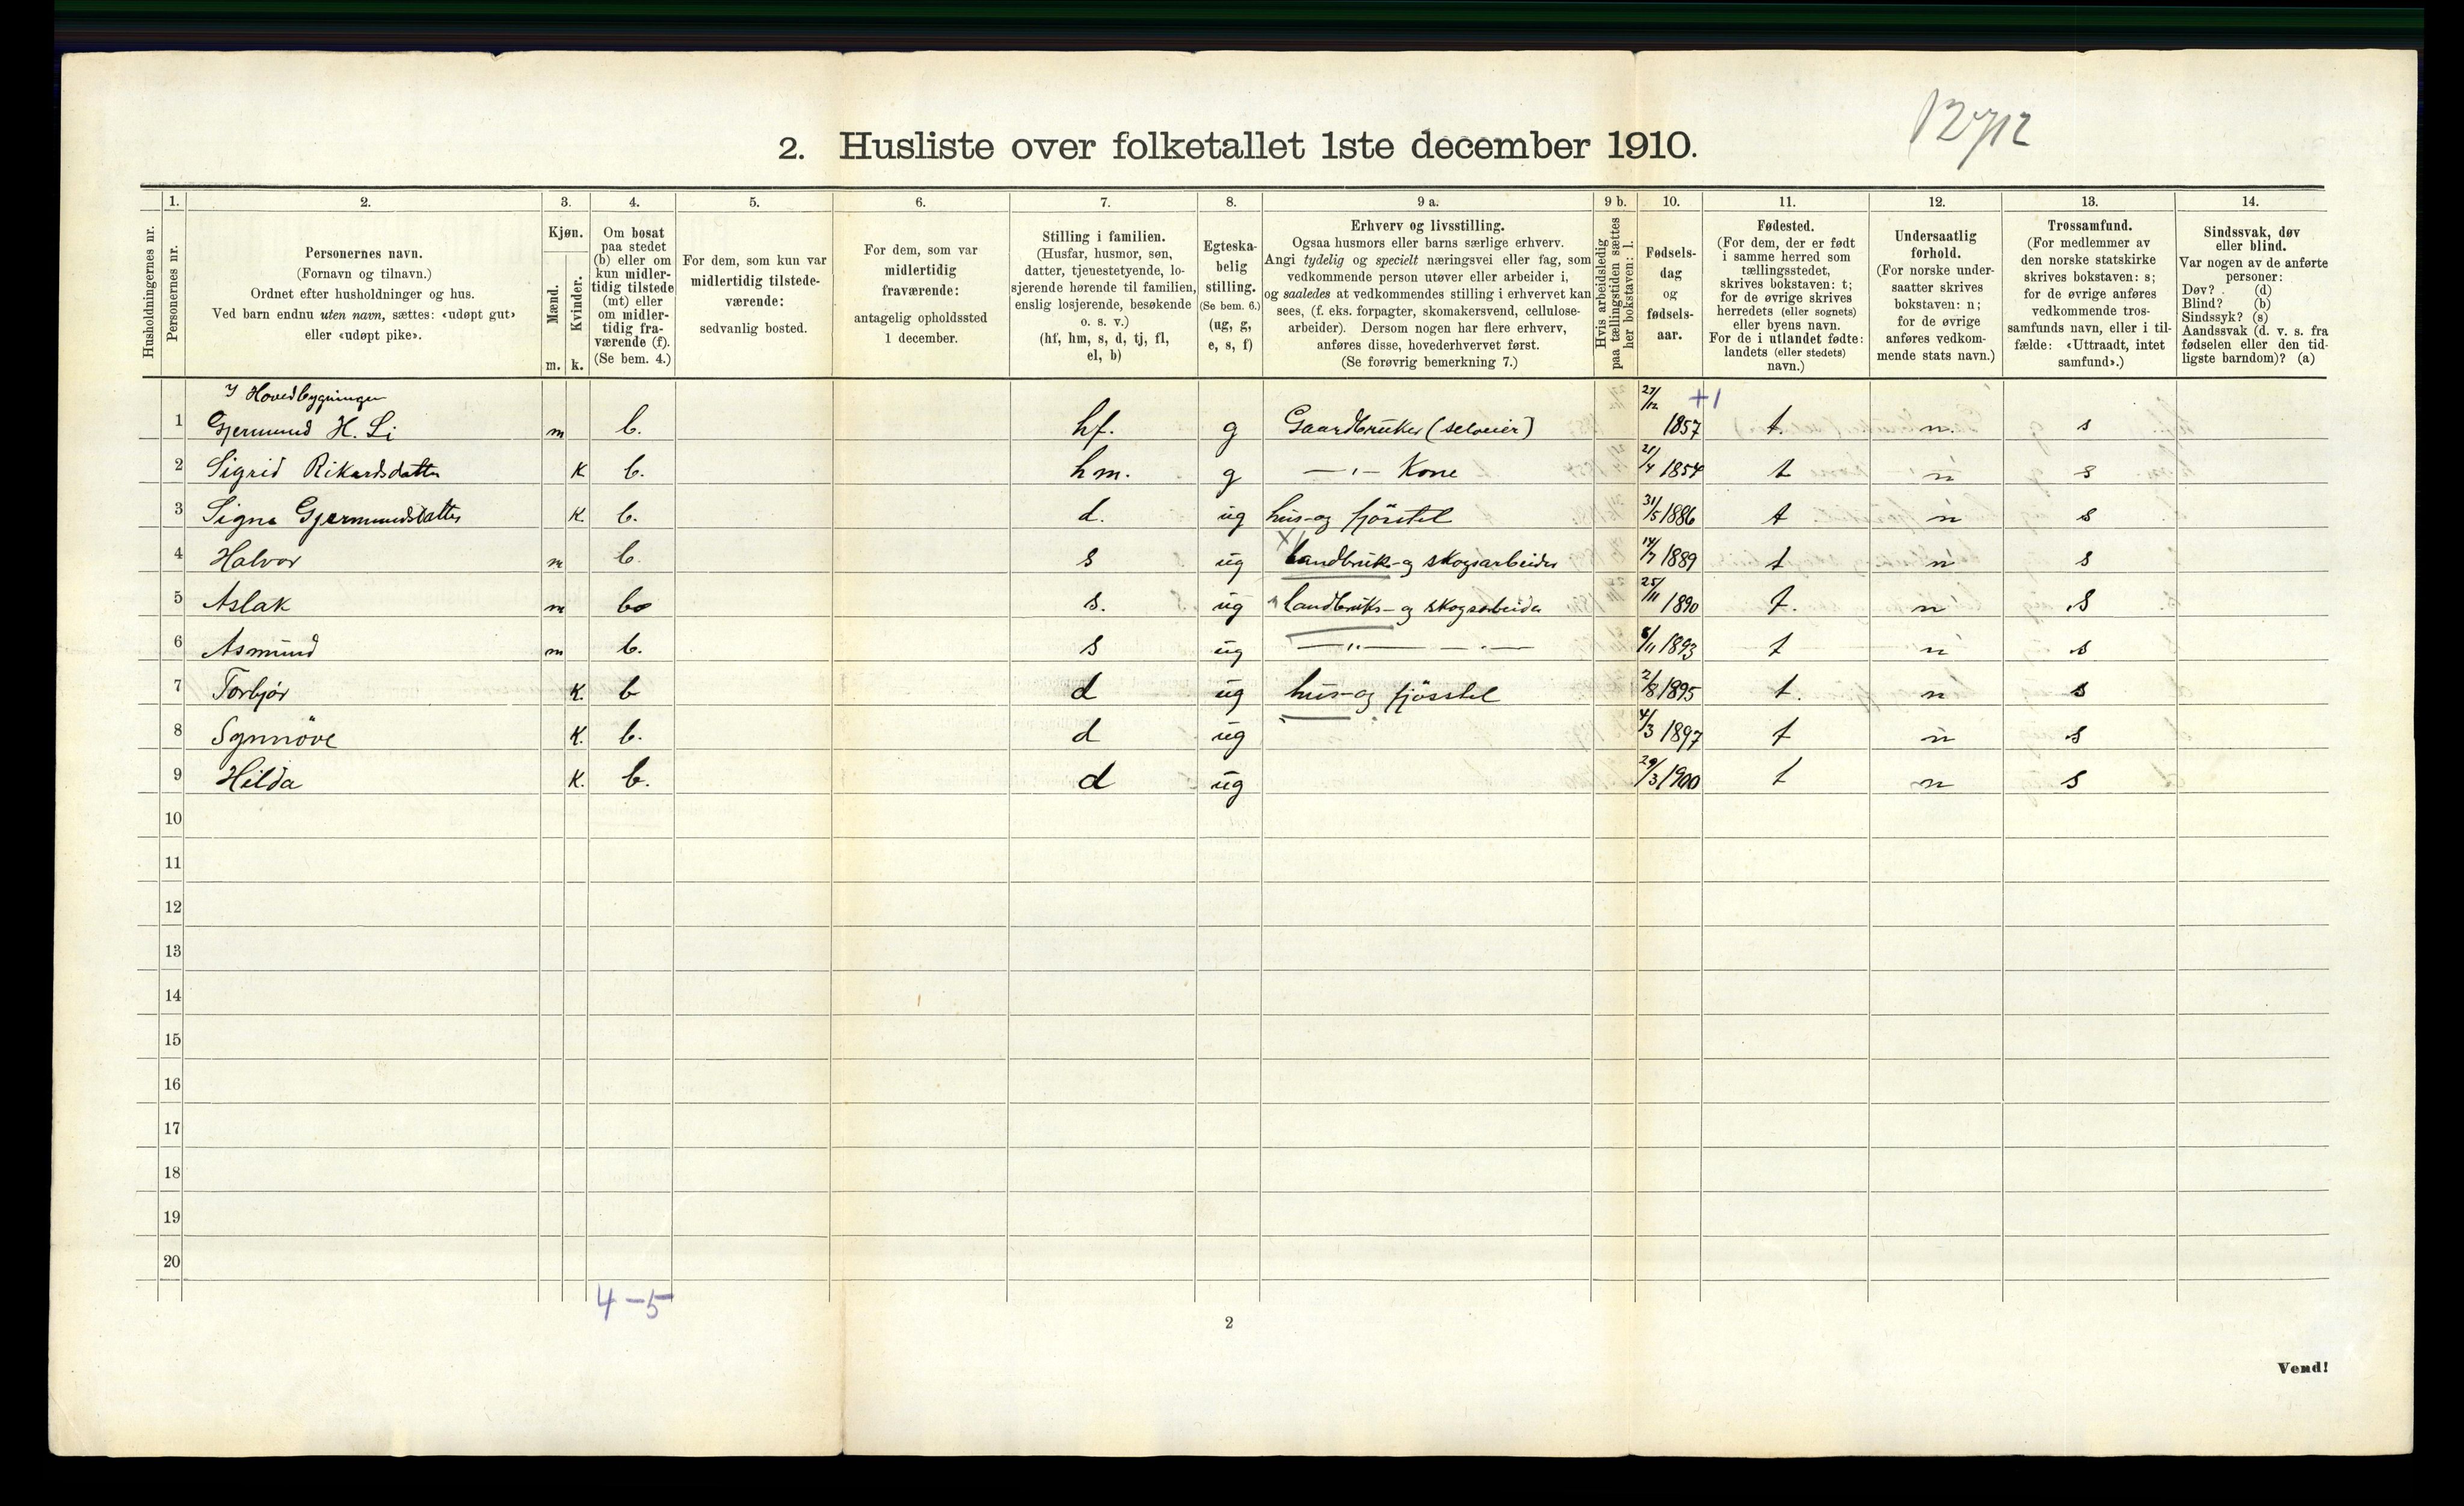 12712
2. Husliste over folketallet 1ste december 1910.
Husholdningernes nr.
1. Personernes nr.
2. Personernes navn.
(Fornavn og tilnavn.)
Ordnet efter husholdninger og hus.
Ved barn endnu uten navn, sættes: «udøpt gut»
eller «udøpt pike».
3. Kjøn.
Mænd. m.
Kvinder. k.
4. Om bosat
paa stedet
(b) eller om
kun midler-
tidig tilstede
(mt) eller
om midler-
tidig fra-
værende (f).
(Se bem. 4.)
5. For dem, som kun var
midlertidig tilstede-
værende:
sedvanlig bosted.
6. For dem, som var
midlertidig
fraværende:
antagelig opholdssted
1 december.
7. Stilling i familien.
(Husfar, husmor, søn,
datter, tjenestetyende, lo-
sjerende hørende til familien,
enslig losjerende, besøkende
o. s. v.)
(hf, hm, s, d, tj, fl,
el, b)
8. Egteska-
belig
stilling.
(Se bem. 6.)
(ug, g,
e, s, f)
9 a. Erhverv og livsstilling.
Ogsaa husmors eller barns særlige erhverv.
Angi tydelig og specielt næringsvei eller fag, som
vedkommende person utøver eller arbeider i,
og saaledes at vedkommendes stilling i erhvervet kan
sees, (f. eks. forpagter, skomakersvend, cellulose-
arbeider). Dersom nogen har flere erhverv,
anføres disse, hovederhvervet først.
(Se forøvrig bemerkning 7.)
9 b. Hvis arbeidsledig
paa tællingstiden sættes
her bokstaven: l.
10. Fødsels-
dag
og
fødsels-
aar.
11. Fødested.
(For dem, der er født
i samme herred som
tællingsstedet,
skrives bokstaven: t;
for de øvrige skrives
herredets (eller sognets)
eller byens navn.
For de i utlandet fødte:
landets (eller stedets)
navn.)
12. Undersaatlig
forhold.
(For norske under-
saatter skrives
bokstaven: n;
for de øvrige
anføres vedkom-
mende stats navn.)
13. Trossamfund.
(For medlemmer av
den norske statskirke
skrives bokstaven: s;
for de øvrige anføres
vedkommende tros-
samfunds navn, eller i til-
fælde: «Uttraadt, intet
samfund».)
14. Sindssvak, døv
eller blind.
Var nogen av de anførte
personer:
Døv? (d)
Blind? (b)
Sindssyk? (s)
Aandssvak (d. v. s. fra
fødselen eller den tid-
ligste barndom)? (a)
I Hovedbygningen
1 Gjermund H. Li m b. hf. g Gaardbruker (selveier) 27/12 1857 +1 t. n. s
2 Sigrid Rikardsdatter K b. hm. g —"— Kone 21/4 1854 t n s
3 Signe Gjermundsdatter K. b. d. ug hus- og fjösstel 31/5 1886 t n s
4 Halvor m b. s ug landbruk- og skogsarbeider 14/7 1889 t n s
5 Aslak m b s. ug landbruks- og skogsarbeider 25/11 1890 t. n s
6 Asmund m b. s ug —"— —"— 6/11 1893 t n s
7 Torbjør K. b d ug hus- og fjösstel 2/8 1895 t. n s
8 Synnöve K. b. d ug 4/3 1897 t n s
9 Hilda K. b. d ug 29/3 1900 t n s
10
11
12
13
14
15
16
17
18
19
20
4-5
2
Vend!